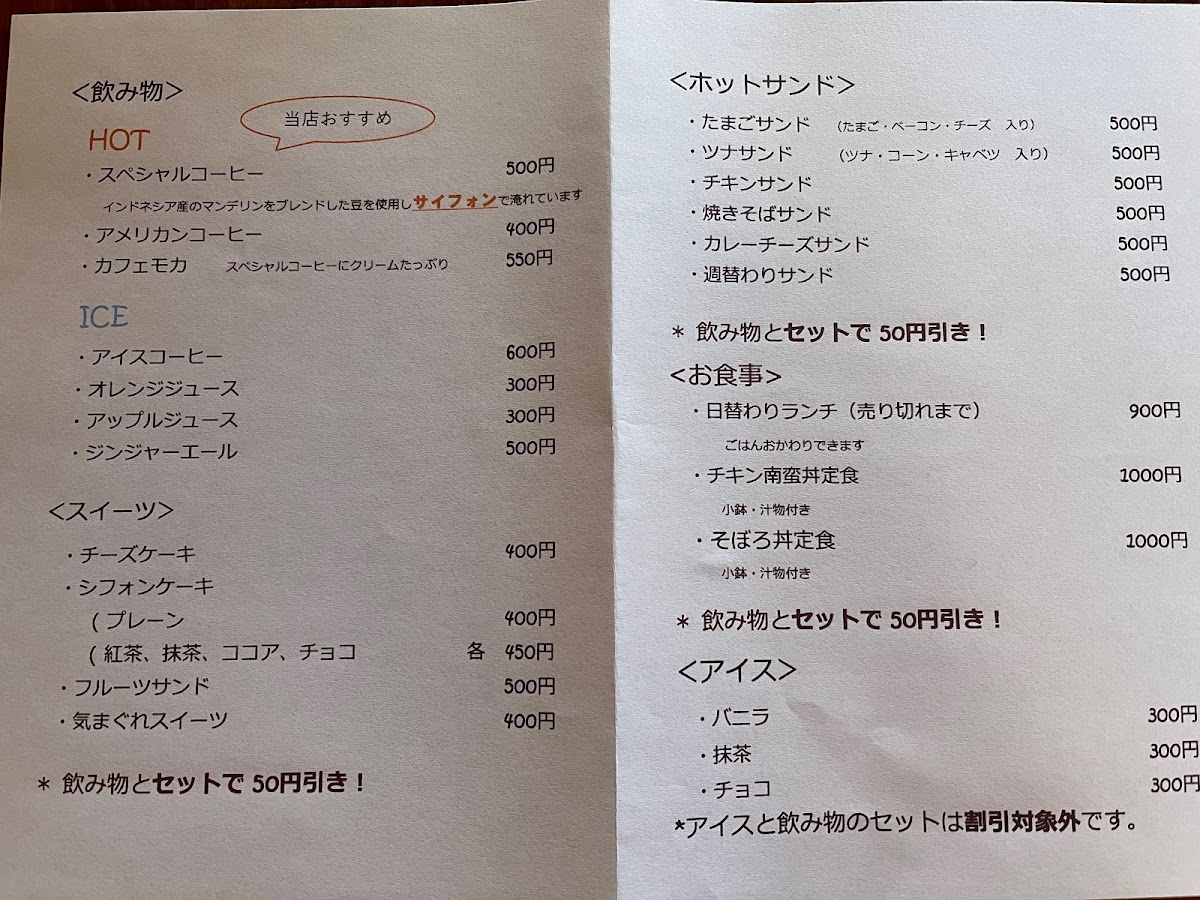 <飲み物>
当店おすすめ
HOT
・スペシャルコーヒー 500円
インドネシア産のマンデリンをブレンドした豆を使用しサイフォンで淹れています
・アメリカンコーヒー 400円
・カフェモカ スペシャルコーヒーにクリームたっぷり 550円
ICE
・アイスコーヒー 600円
・オレンジジュース 300円
・アップルジュース 300円
・ジンジャーエール 500円
<スイーツ>
・チーズケーキ 400円
・シフォンケーキ
(プレーン 400円
(紅茶、抹茶、ココア、チョコ 各 450円
・フルーツサンド 500円
・気まぐれスイーツ 400円
* 飲み物とセットで 50円引き!
<ホットサンド>
・たまごサンド (たまご・ベーコン・チーズ 入り) 500円
・ツナサンド (ツナ・コーン・キャベツ 入り) 500円
・チキンサンド 500円
・焼きそばサンド 500円
・カレーチーズサンド 500円
・週替わりサンド 500円
* 飲み物とセットで 50円引き!
<お食事>
・日替わりランチ(売り切れまで) 900円
ごはんおかわりできます
・チキン南蛮丼定食 1000円
小鉢・汁物付き
・そぼろ丼定食 1000円
小鉢・汁物付き
* 飲み物とセットで 50円引き!
<アイス>
・バニラ 300円
・抹茶 300円
・チョコ 300円
*アイスと飲み物のセットは割引対象外です。